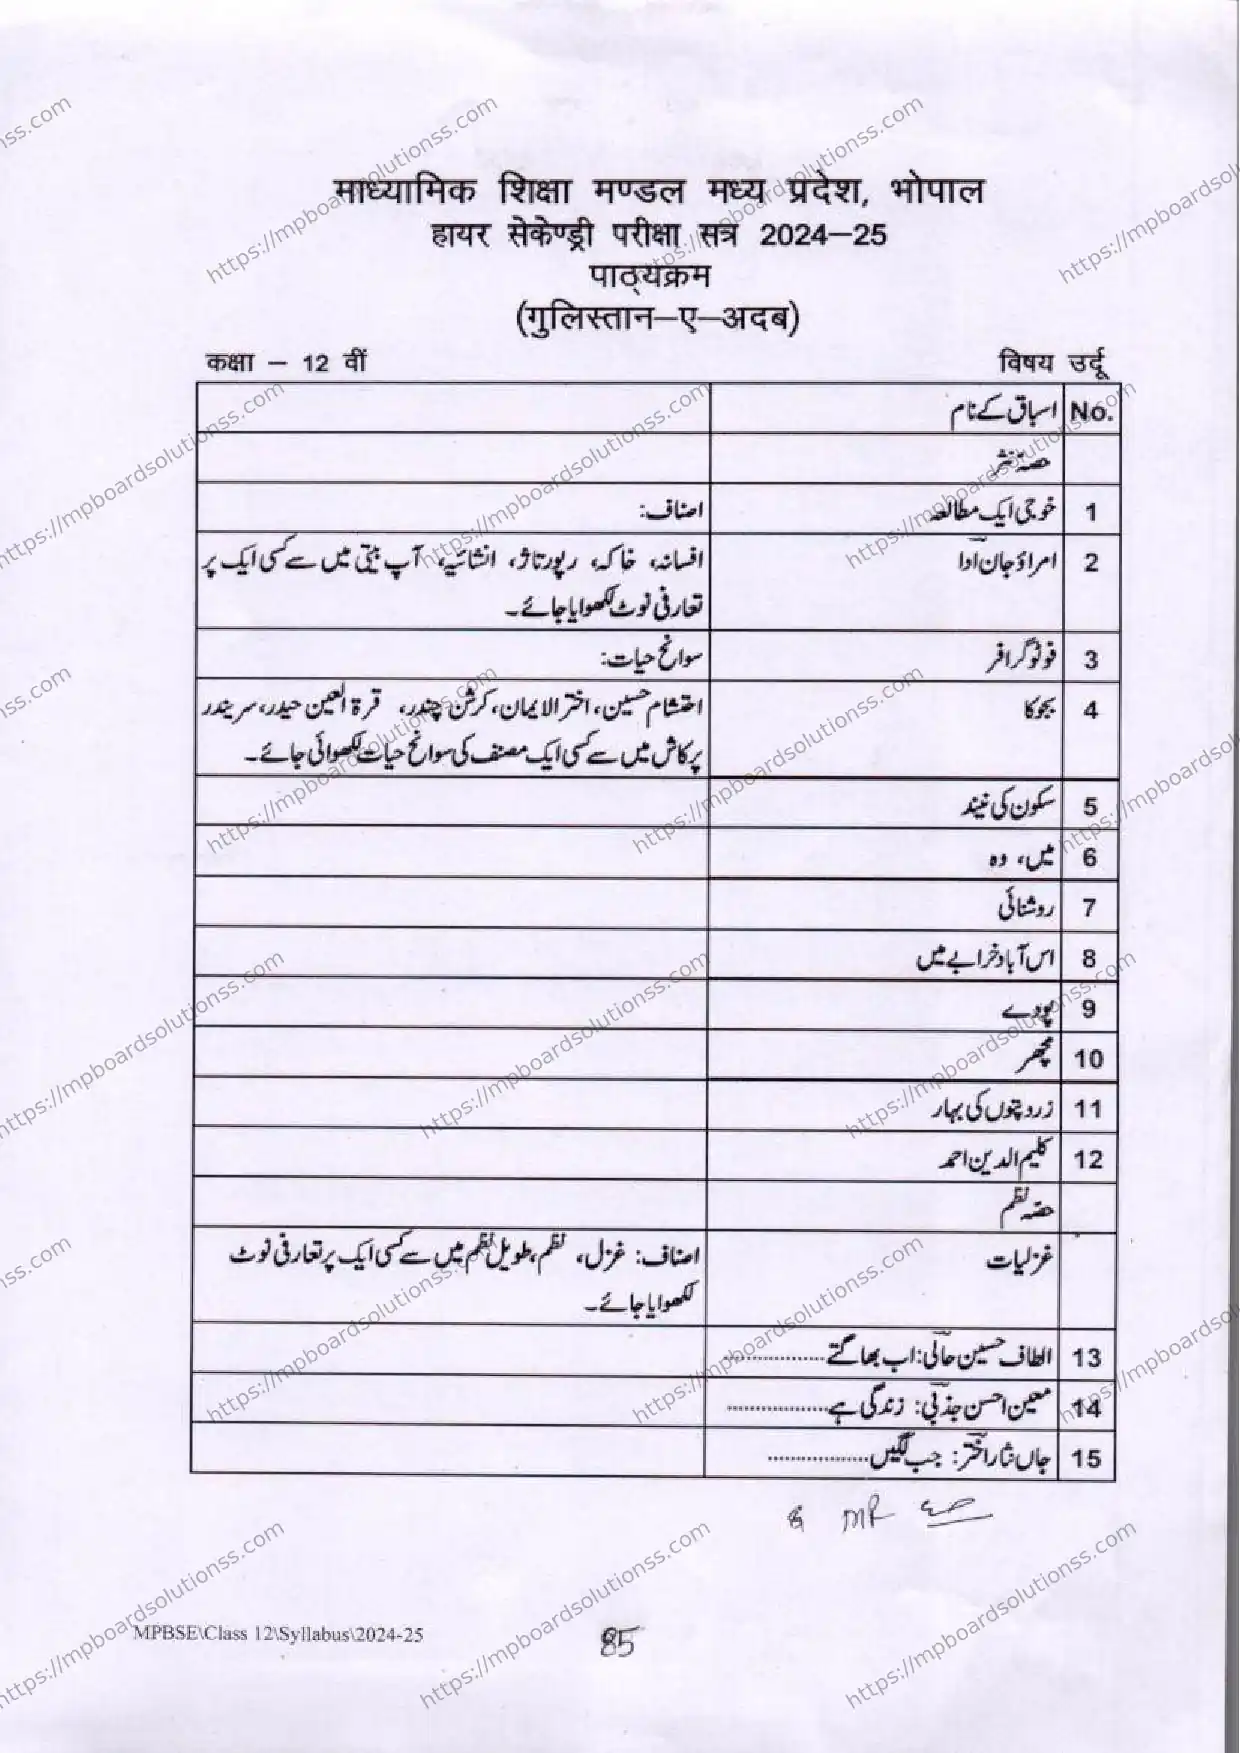 माध्यामिक शिक्षा मण्डल मध्य प्रदेश, भोपाल
हायर सेकेण्ड्री परीक्षा सत्र 2024–25
पाठ्यक्रम
(गुलिस्तान–ए–अदब)
कक्षा – 12 वीं विषय उर्दू
No. اسباق کے نام
حصۂ نثر
1 خوجی ایک مطالعہ اصناف:
2 امراؤ جان ادا افسانہ، خاکہ، رپورتاژ، انشائیہ، آپ بیتی میں سے کسی ایک پر
تعارفی نوٹ لکھوایا جائے۔
3 فوٹو گرافر سوانح حیات:
4 بجوکا احتشام حسین، اختر الایمان، کرشن چندر، قرۃ العین حیدر، سریندر
پرکاش میں سے کسی ایک مصنف کی سوانح حیات لکھوائی جائے۔
5 سکون کی نیند
6 میں، وہ
7 روشنائی
8 اس آباد خرابے میں
9 پودے
10 مچھر
11 زرد پتوں کی بہار
12 کلیم الدین احمد
حصہ نظم
غزلیات اصناف: غزل، نظم، طویل نظم میں سے کسی ایک پر تعارفی نوٹ
لکھوایا جائے۔
13 الطاف حسین حالی: اب بھاگتے..................
14 معین احسن جذبی: زندگی ہے..................
15 جاں نثار اختر: جب لگیں..................
MP
MPBSE\Class 12\Syllabus\2024-25
85
https://mpboardsolutionss.com